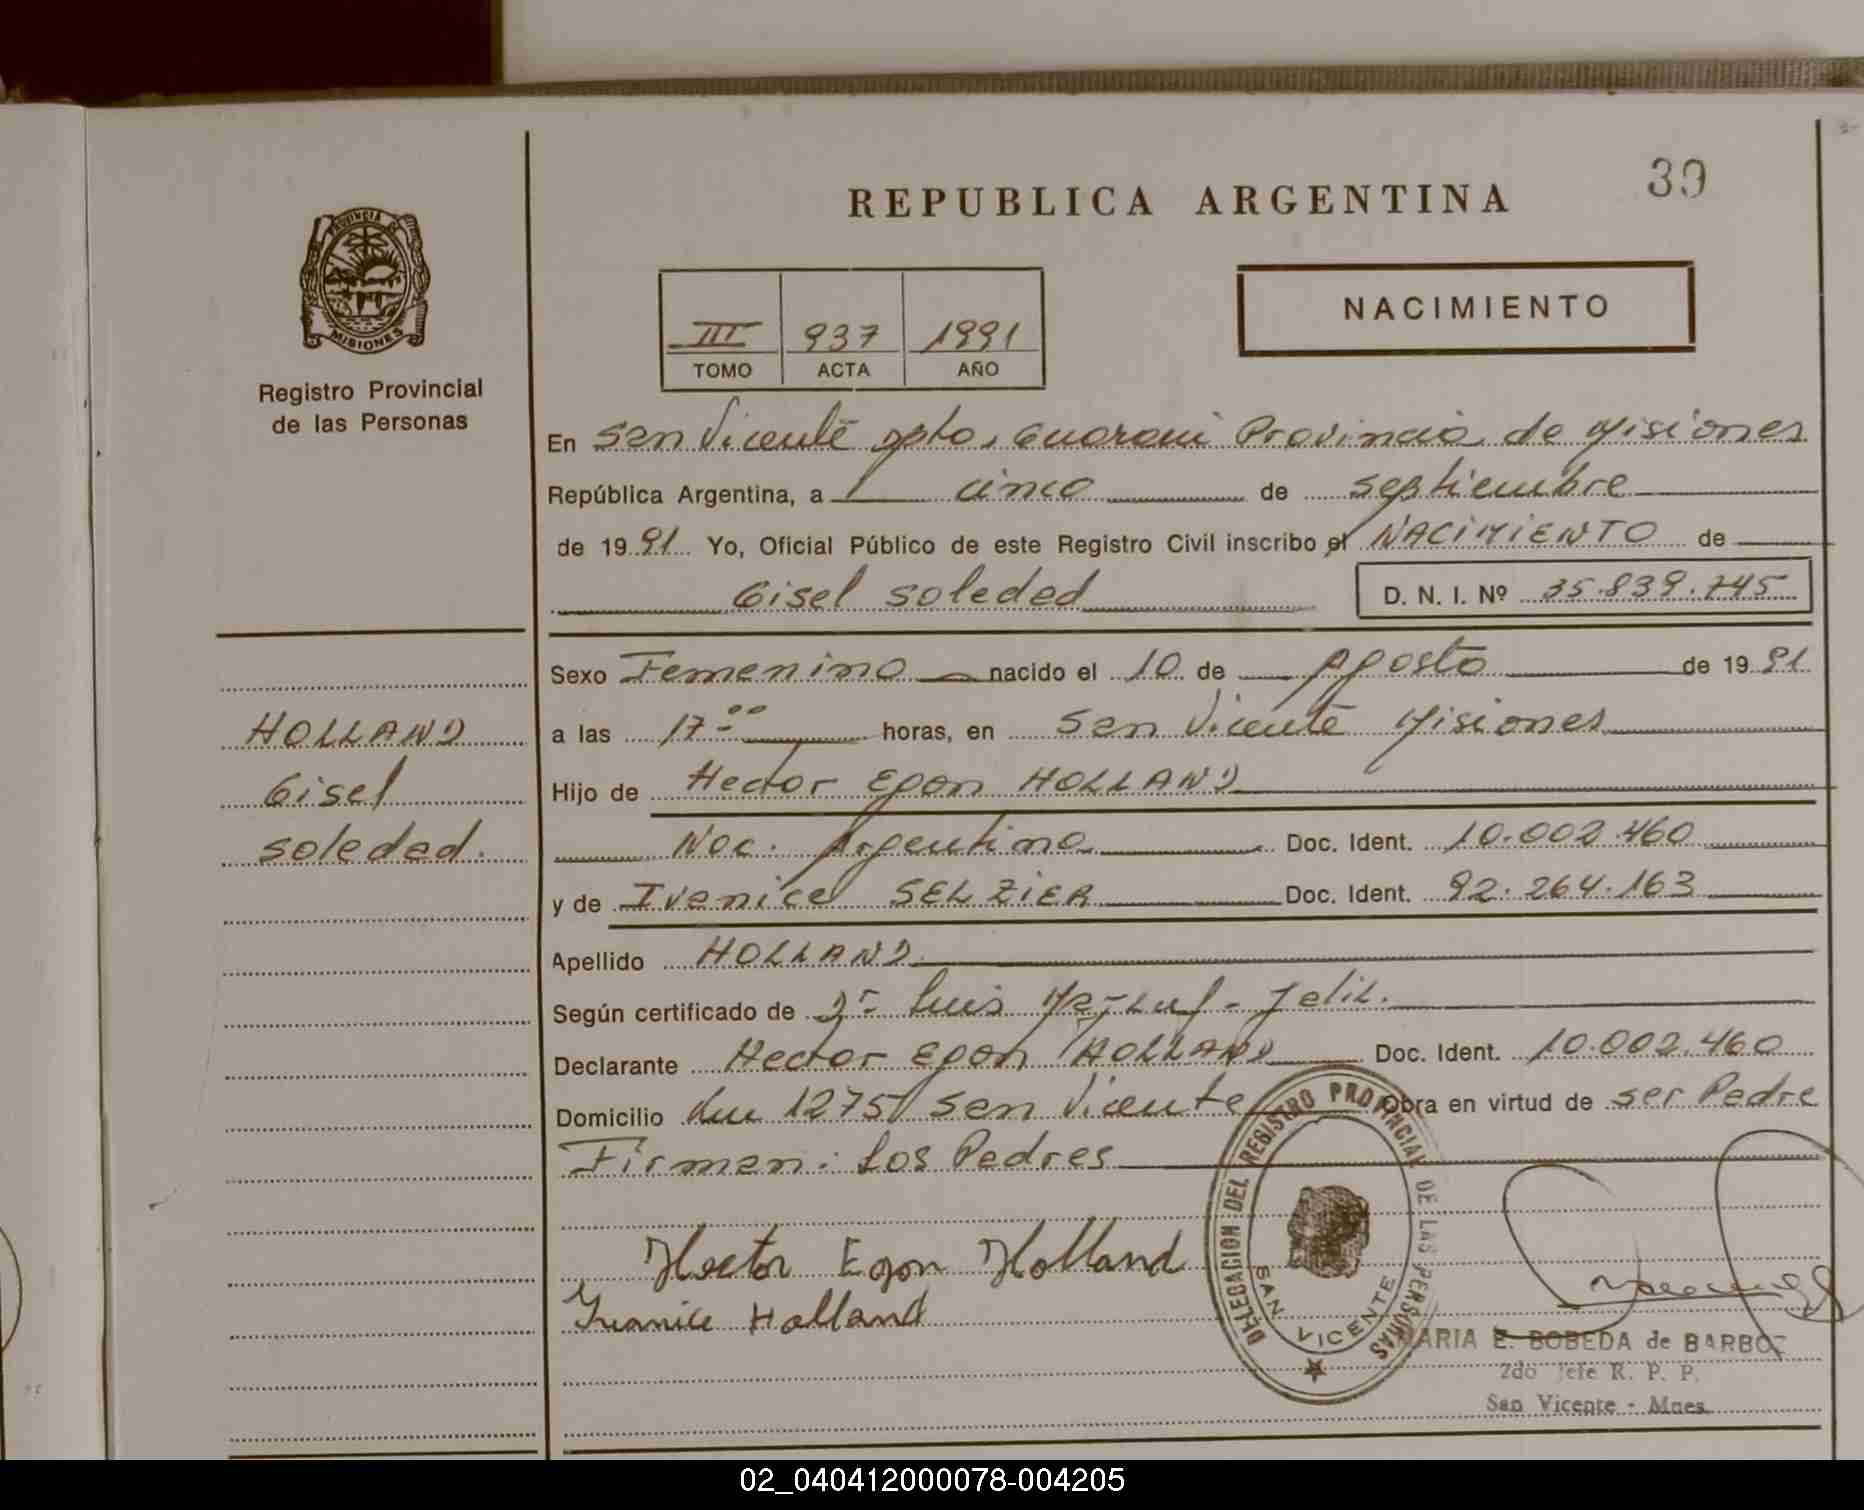 REPUBLICA ARGENTINA
39
PROVINCIA DE
MISIONES
Registro Provincial
de las Personas
NACIMIENTO
III 937 1991
TOMO ACTA AÑO
En San Vicente Dpto. Guarani Provincia de Misiones
República Argentina, a cinco de septiembre
de 1991 Yo, Oficial Público de este Registro Civil inscribo el NACIMIENTO de
Gisel Soledad D. N. I. Nº 35.839.745
Sexo Femenino nacido el 10 de Agosto de 1991
HOLLAND
Gisel
Soledad.
a las 17-00 horas, en San Vicente Misiones
Hijo de Hector Egon HOLLAND
Nac. Argentino Doc. Ident. 10.002.460
y de Ivanice SELZIER Doc. Ident. 92.264.163
Apellido HOLLAND
Según certificado de Luis
Declarante Hector Egon HOLLAND Doc. Ident. 10.002.460
Domicilio 1275 San Vicente Obra en virtud de ser Padre
Firman: Los Padres
Hector Egon Holland
Ivanice Holland
DELEGACION DEL REGISTRO PROVINCIAL DE LAS PERSONAS
SAN VICENTE
MARIA E. BOBEDA de BARBOZ
2do Jefe R. P. P.
San Vicente - Mnes.
02_040412000078-004205